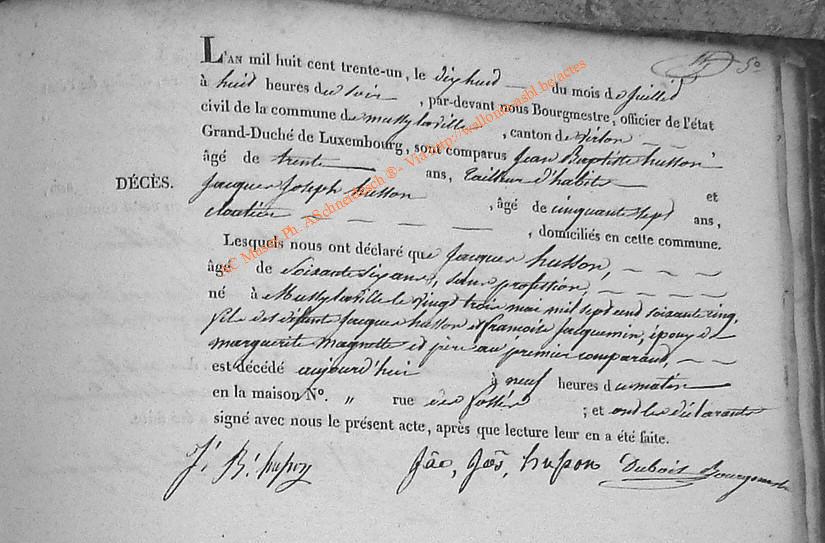 50
L'AN mil huit cent trente-un, le dix huit du mois de juillet
à huit heures du soir, par-devant nous Bourgmestre, officier de l'état
civil de la commune de mussy la ville, canton de virton
Grand-Duché de Luxembourg, sont comparus Jean Baptiste husson
âgé de trente ans, tailleur d'habits et
DÉCÈS.
Jacques Joseph husson, âgé de cinquante sept ans,
cloutier, domiciliés en cette commune.
Lesquels nous ont déclaré que Jacques husson,
âgé de soixante six ans, sans profession,
né à Mussy la ville le vingt trois mai mil sept cent soixante cinq,
fils des défunts Jacques husson et françoise Jacquemin, époux de
marguerite magnette et père au premier comparant,
est décédé aujourd'hui à neuf heures du matin
en la maison N°. " rue des fossés ; et ont les déclarants
signé avec nous le présent acte, après que lecture leur en a été faite.
J. B. husson Jac, Jos, husson Dubois Bourgmestre
©- Via http://wallonia-asbl.be/actes